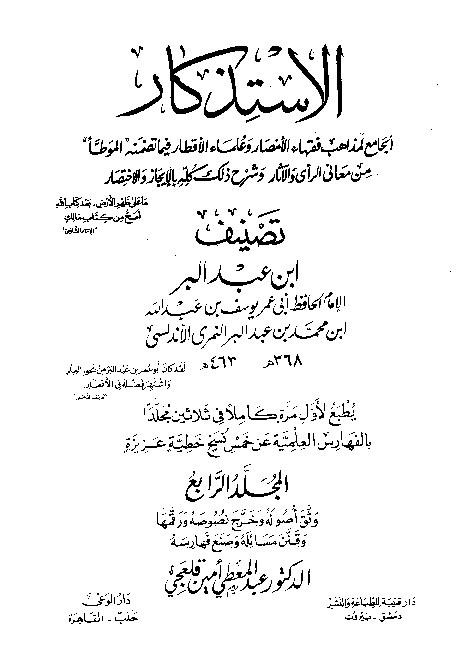 الاستذكار
الجامع لمذاهب فقهاء الأمصار وعلماء الأقطار فيما تضمنه "الموطأ"
من معاني الرأي والآثار وشرح ذلك كله بالإيجاز والاختصار
ما على ظهر الأرض - بعد كتاب الله
أصح من كتاب مالك
"الإمام الشافعي"
تصنيف
ابن عبد البر
الإمام الحافظ أبي عمر يوسف بن عبد الله
ابن محمد بن عبد البر النمري الأندلسي
٣٦٨هـ ٤٦٣هـ
لقد كان أبو عمر بن عبد البر من بحور العلم
واشتهر فضله في الأقطار
يُطبع لأوّل مرّة كاملاً في ثلاثين مجلّدًا
بالفهارس العلميّة عن خمس نُسخ خطيّة عزيزة
المجلّد الرابع
وثّق أصوله وخرّج نصوصه ورقّمها
وقنّن مسائله وصنع فهارسه
الدكتور عبد المعطي أمين قلعجي
دار قتيبة للطباعة والنشر
دمشق - بيروت
دار الوعي
حلب - القاهرة